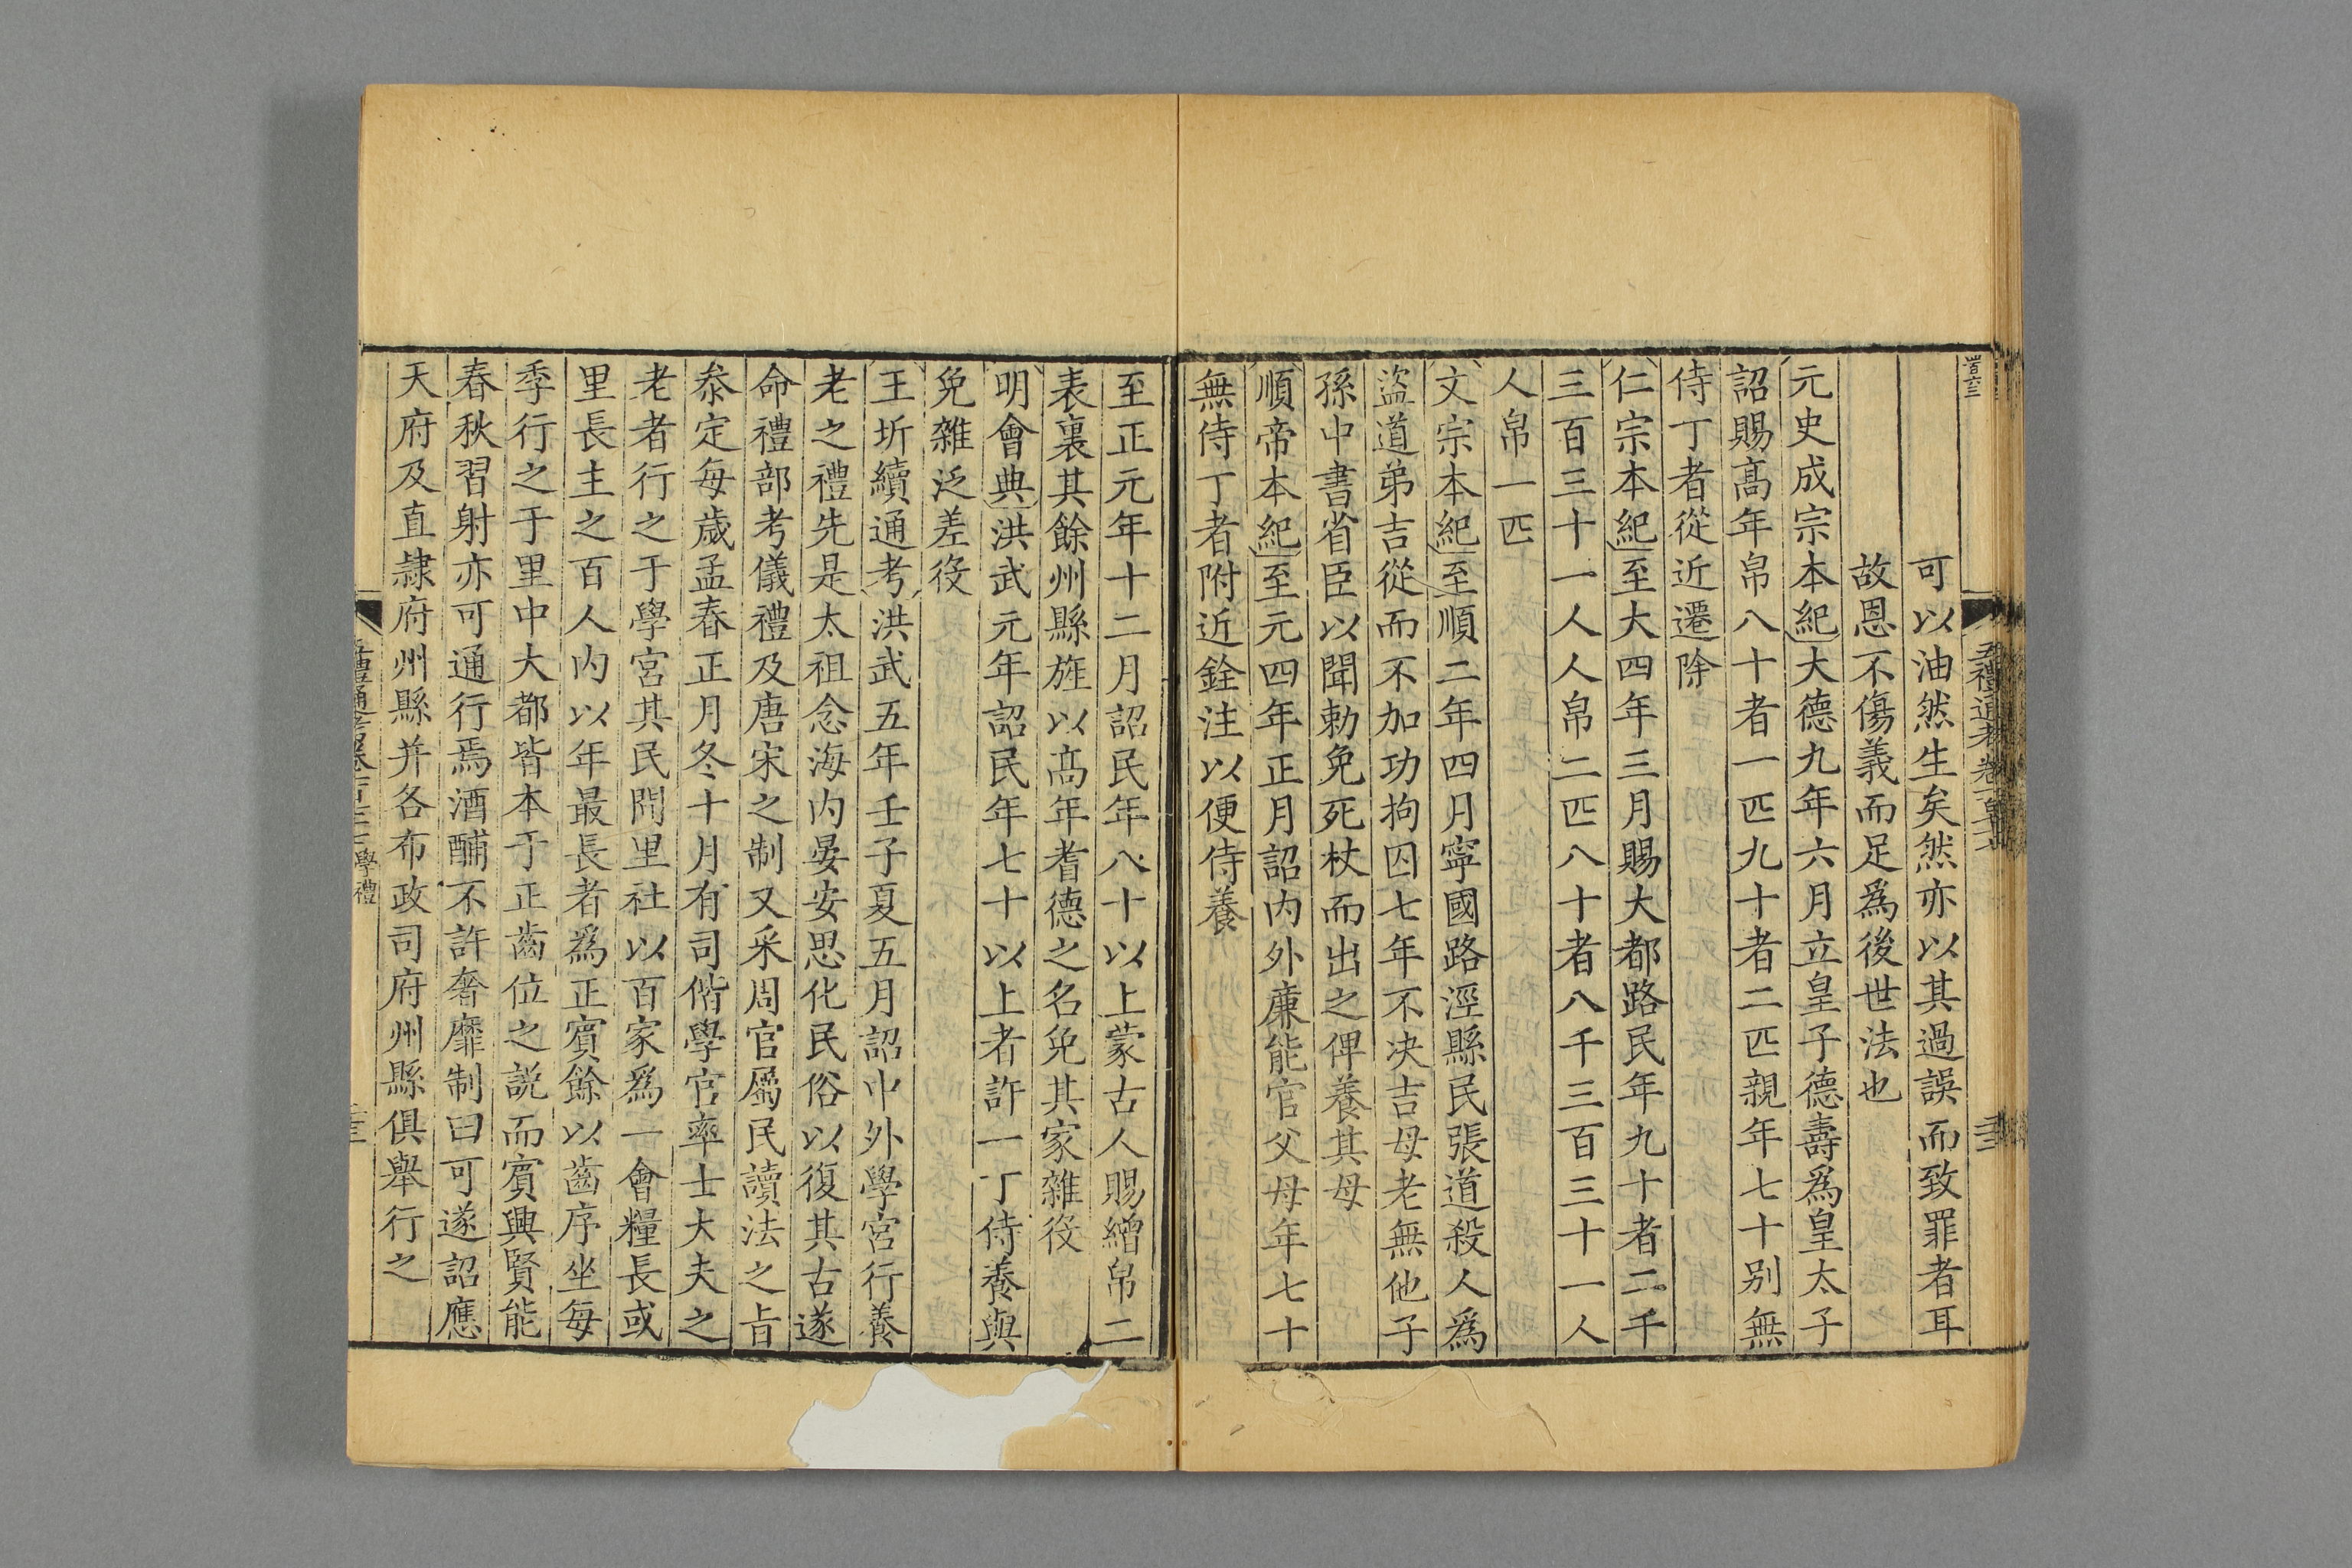 可以油然生矣然亦以其過誤而致罪者耳
故恩不傷義而足爲後世法也
元史成宗本紀大德九年六月立皇子德壽爲皇太子
詔賜高年帛八十者一匹九十者二匹親年七十别無
侍丁者從近遷除
仁宗本紀至大四年三月賜大都路民年九十者二千
三百三十一人人帛二匹八十者八千三百三十一人
人帛一匹
文宗本紀至順二年四月寧國路涇縣民張道殺人爲
盜道弟吉從而不加功拘囚七年不決吉母老無他子
孫中書省臣以聞勅免死杖而出之俾養其母
順帝本紀至元四年正月詔内外廉能官父母年七十
無侍丁者附近銓注以便侍養
至正元年十二月詔民年八十以上蒙古人賜繒帛二
表裏其餘州縣旌以高年耆德之名免其家雜役
明會典洪武元年詔民年七十以上者許一丁侍養與
免雜泛差役
王圻續通考洪武五年壬子夏五月詔中外學宮行養
老之禮先是太祖念海内晏安思化民俗以復其古遂
命禮部考儀禮及唐宋之制又采周官屬民讀法之旨
叅定每歲孟春正月冬十月有司偕學官率士大夫之
老者行之于學宮其民間里社以百家爲一會糧長或
里長主之百人内以年最長者爲正賓餘以齒序坐每
季行之于里中大都皆本于正齒位之説而賓興賢能
春秋習射亦可通行焉酒酺不許奢靡制曰可遂詔應
天府及直隸府州縣并各布政司府州縣俱舉行之